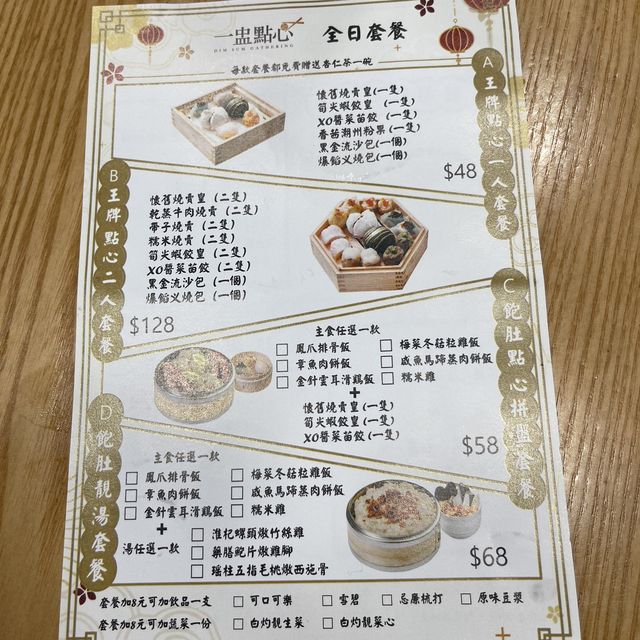 一盅點心
DIM SUM GATHERING
全日套餐
每款套餐都免費贈送杏仁茶一碗
A 王牌點心一人套餐
懷舊燒賣皇(一隻)
筍尖蝦餃皇 (一隻)
XO醬菜苗餃 (一隻)
香茜潮州粉果 (一隻)
黑金流沙包(一個)
爆餡义燒包(一個)
$48
B 王牌點心二人套餐
懷舊燒賣皇 (二隻)
乾蒸牛肉燒賣 (二隻)
帶子燒賣 (二隻)
糯米燒賣 (二隻)
筍尖蝦餃皇 (二隻)
XO醬菜苗餃 (二隻)
黑金流沙包 (一個)
爆餡义燒包 (一個)
$128
C 飽肚點心拼盤套餐
主食任選一款
鳳爪排骨飯
梅菜冬菇粒雞飯
章魚肉餅飯
咸魚馬蹄蒸肉餅飯
金針雲耳滑鷄飯
糯米雞
+
懷舊燒賣皇(一隻)
筍尖蝦餃皇(一隻)
XO醬菜苗餃(一隻)
$58
D 飽肚靚湯套餐
主食任選一款
鳳爪排骨飯
梅菜冬菇粒雞飯
章魚肉餅飯
咸魚馬蹄蒸肉餅飯
金針雲耳滑鷄飯
糯米雞
+
湯任選一款
淮杞螺頭燉竹絲雞
藥膳鮑片燉雞腳
瑤柱五指毛桃燉西施骨
$68
套餐加8元可加飲品一支
可口可樂
雪碧
忌廉梳打
原味豆漿
套餐加8元可加蔬菜一份
白灼靚生菜
白灼靚菜心